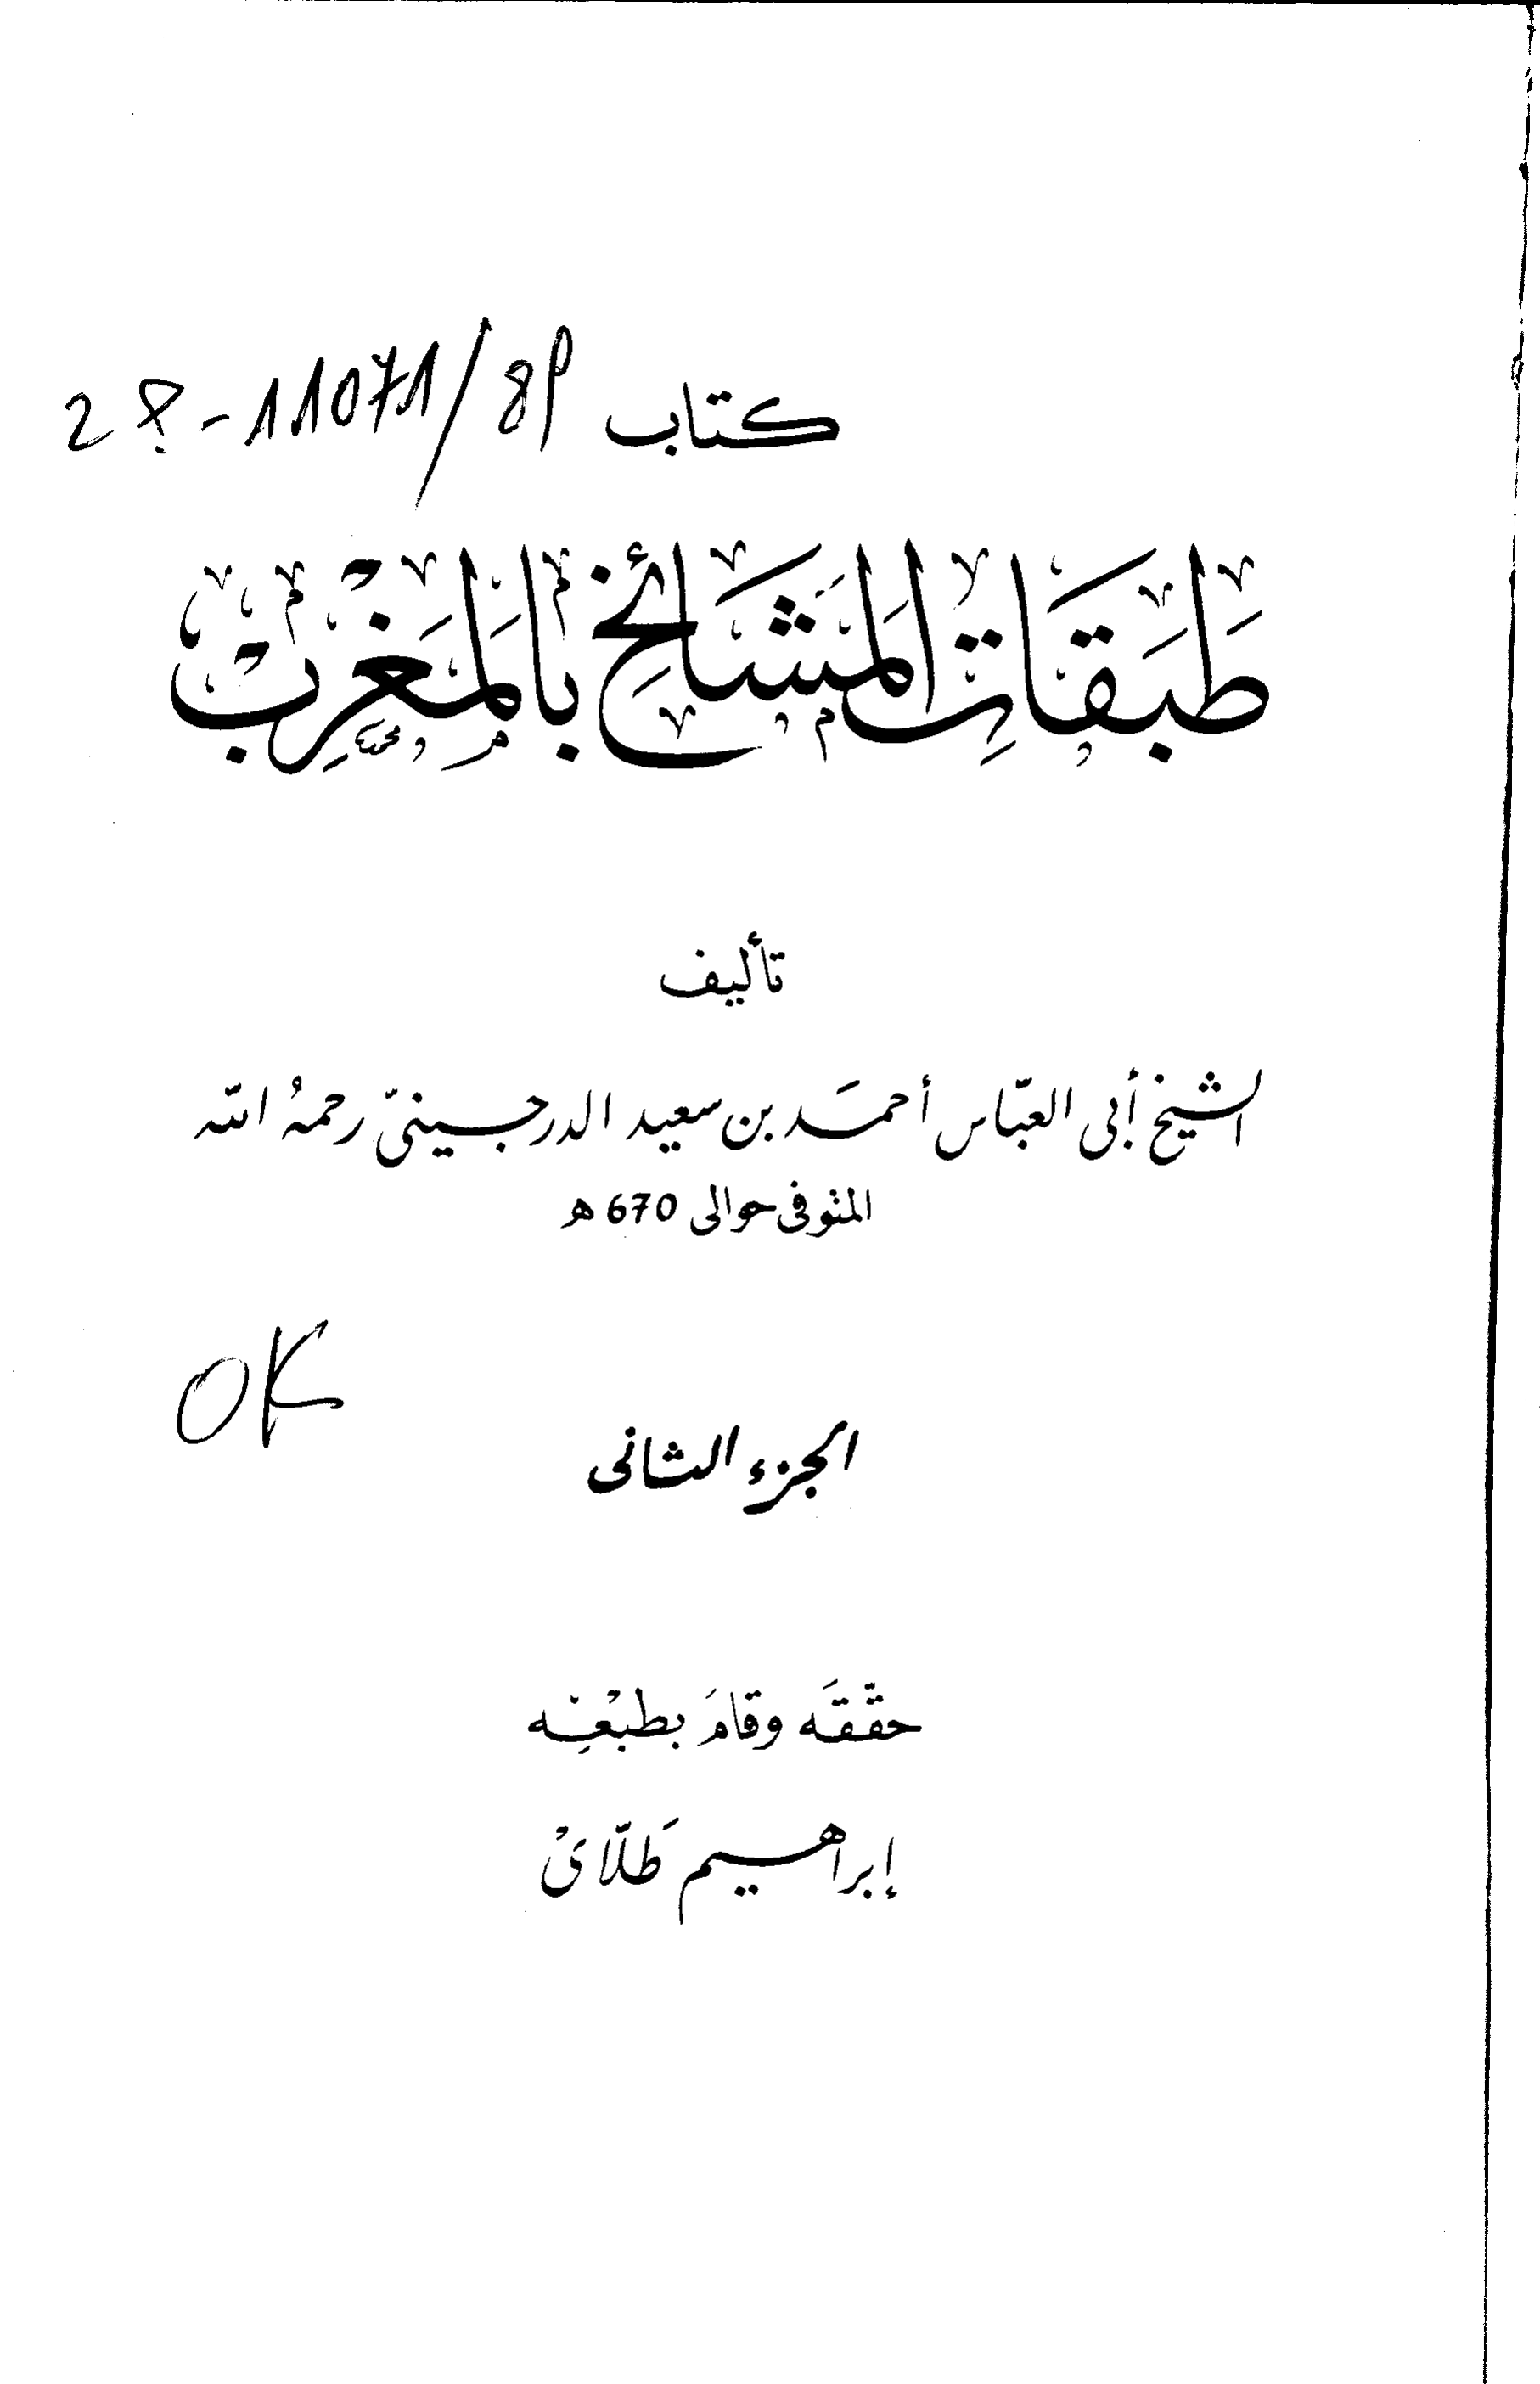 كتاب
11071/89
طَبَقَاتِ المَشَائِخِ بِالمَغْرِبْ
تأليف
الشيخ أبى العبّاس أحمَد بن سعيد الدرجينىّ رحمهُ الله
المتوفى حوالى 670 ه
OK
الجزء الثانى
حقّقَه وقامَ بطبْعِه
إبراهيم طَلّاىْ